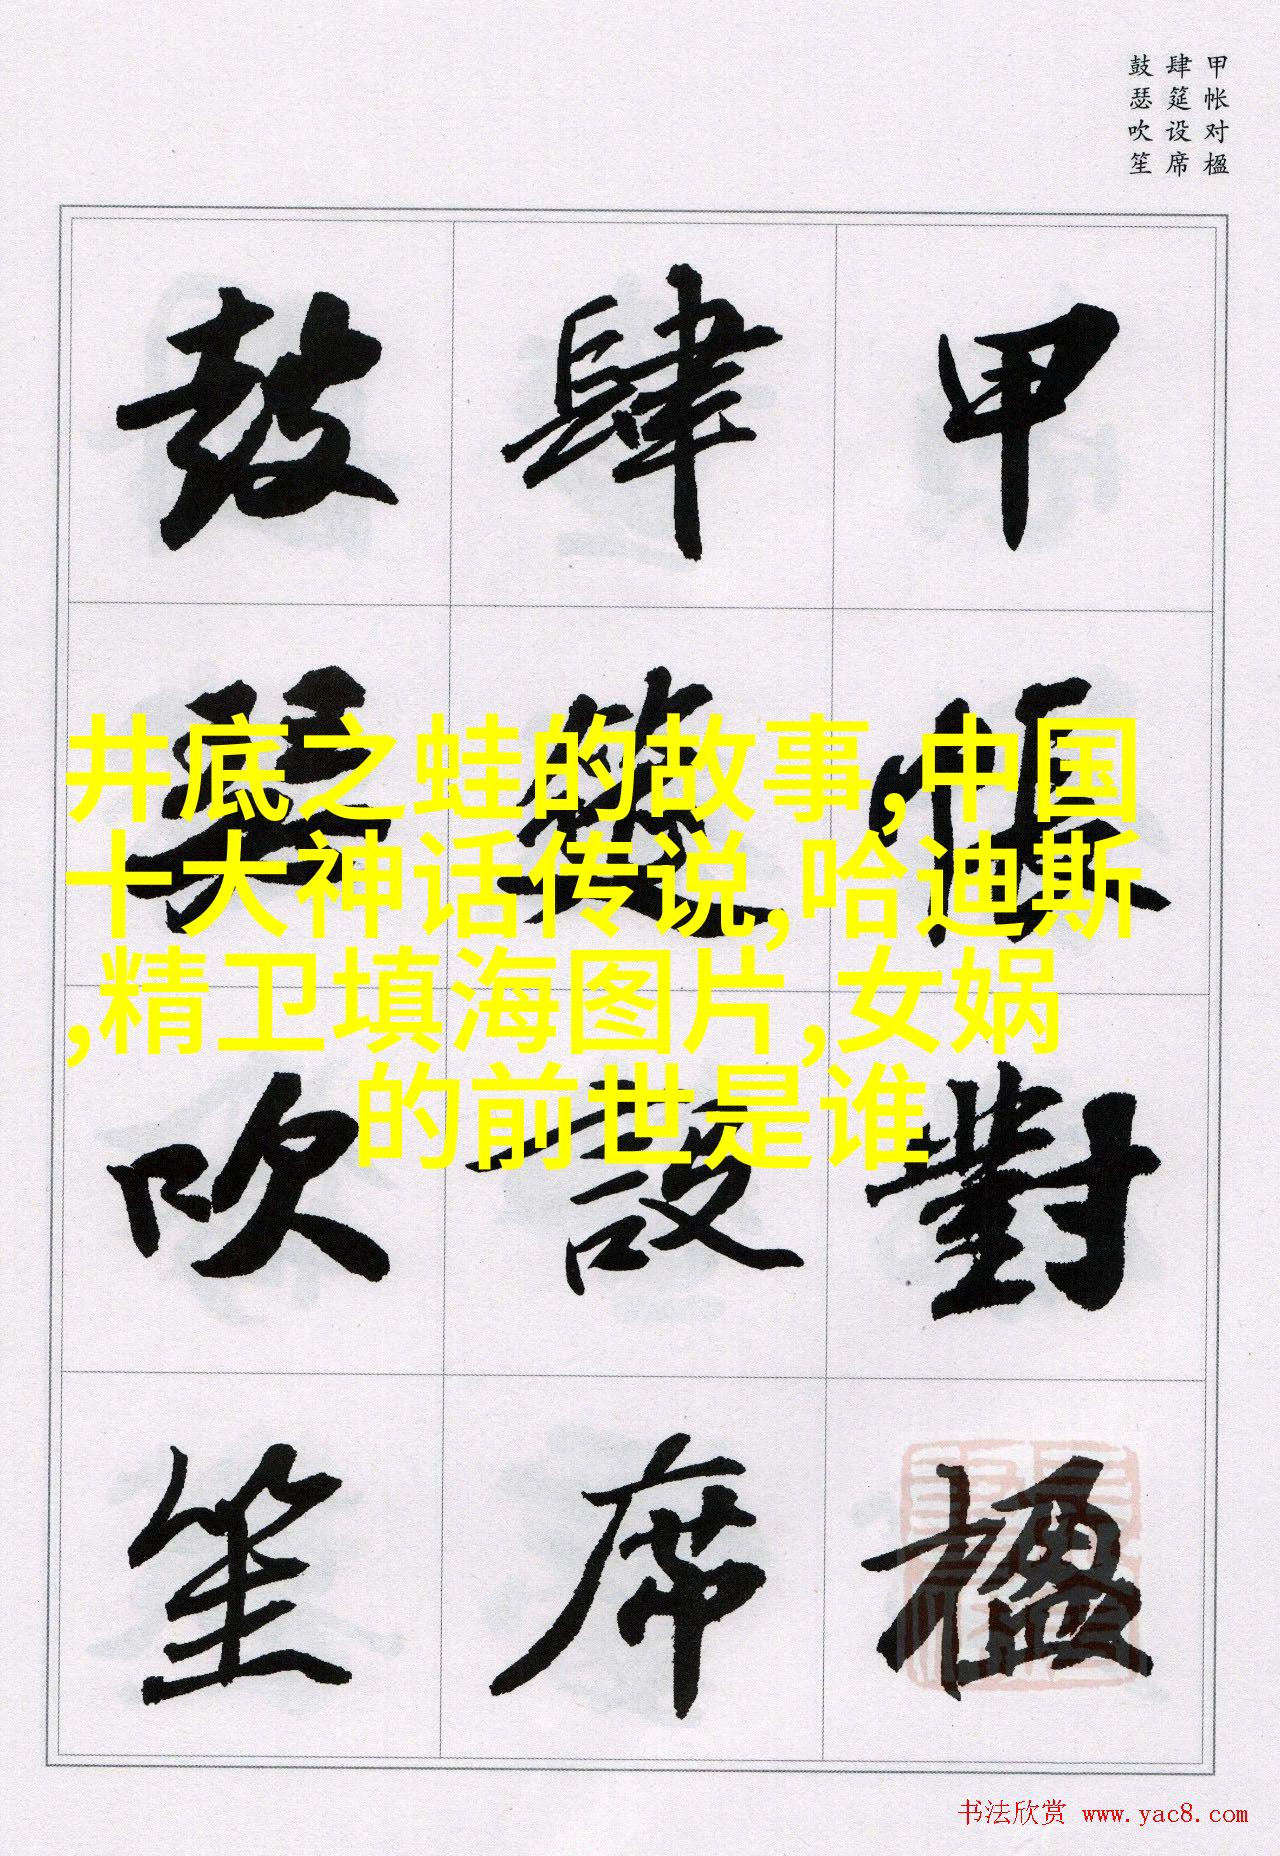 甲帐对楹
肆筵设席
鼓瑟吹笙
甲帳對楹
肆筵設席
鼓瑟吹笙
井底之蛙的故事,中国
十大神话传说,哈迪斯
,精卫填海图片,女娲
的前世是谁
书法欣赏 www.yac8.com